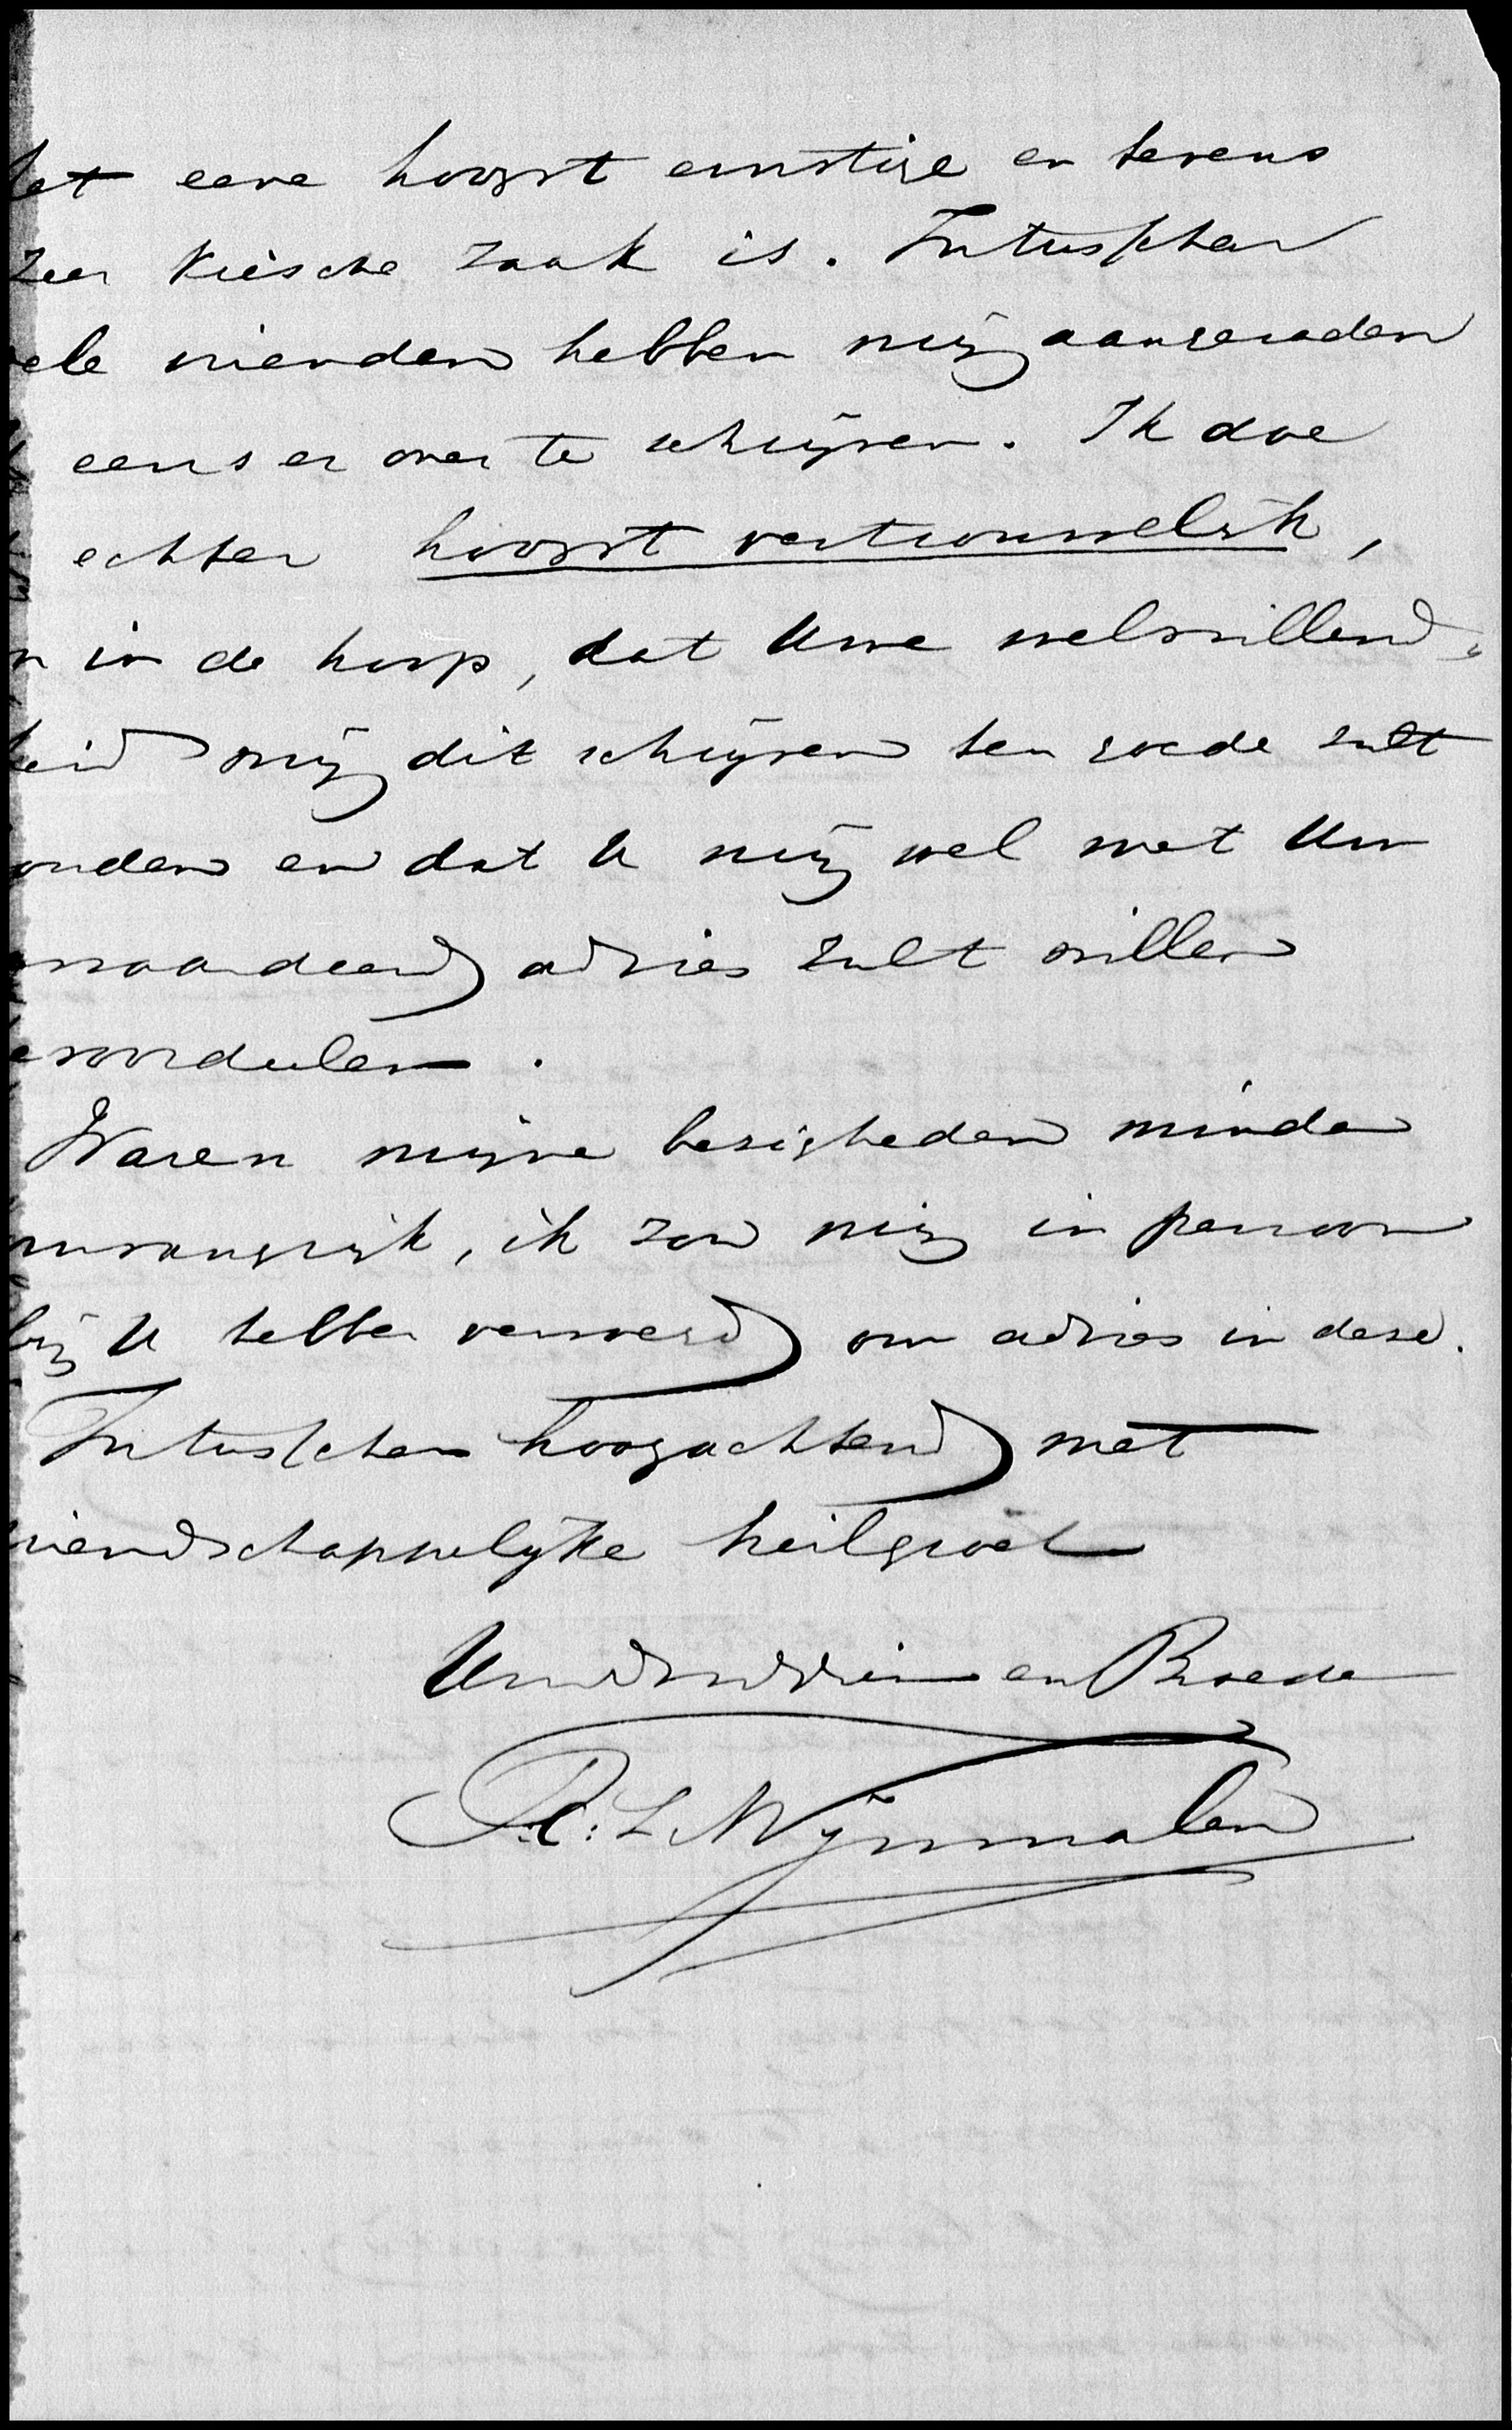 het eene hoogst ernstige en tevens
zeer kiesche zaak is. Intusschen
vele vrienden hebben mij aangeraden
eens er over te schrijven. Ik doe
echter hoogst vertrouwelijk,
in de hoop, dat Uwe welwillend„
heid mij dit schrijven ten goede zult
houden en dat U mij wel met Uw
gewaardeerd advies zult willen
bevoordeelen.
Waren mijne bezigheden minder
omvangrijk, ik zou mij in persoon
bij U hebben vervoegd om advies in deze.
Intusschen hoogachtend met
vriendschappelijke heilgroet
en Broeder
L Wijnmalen